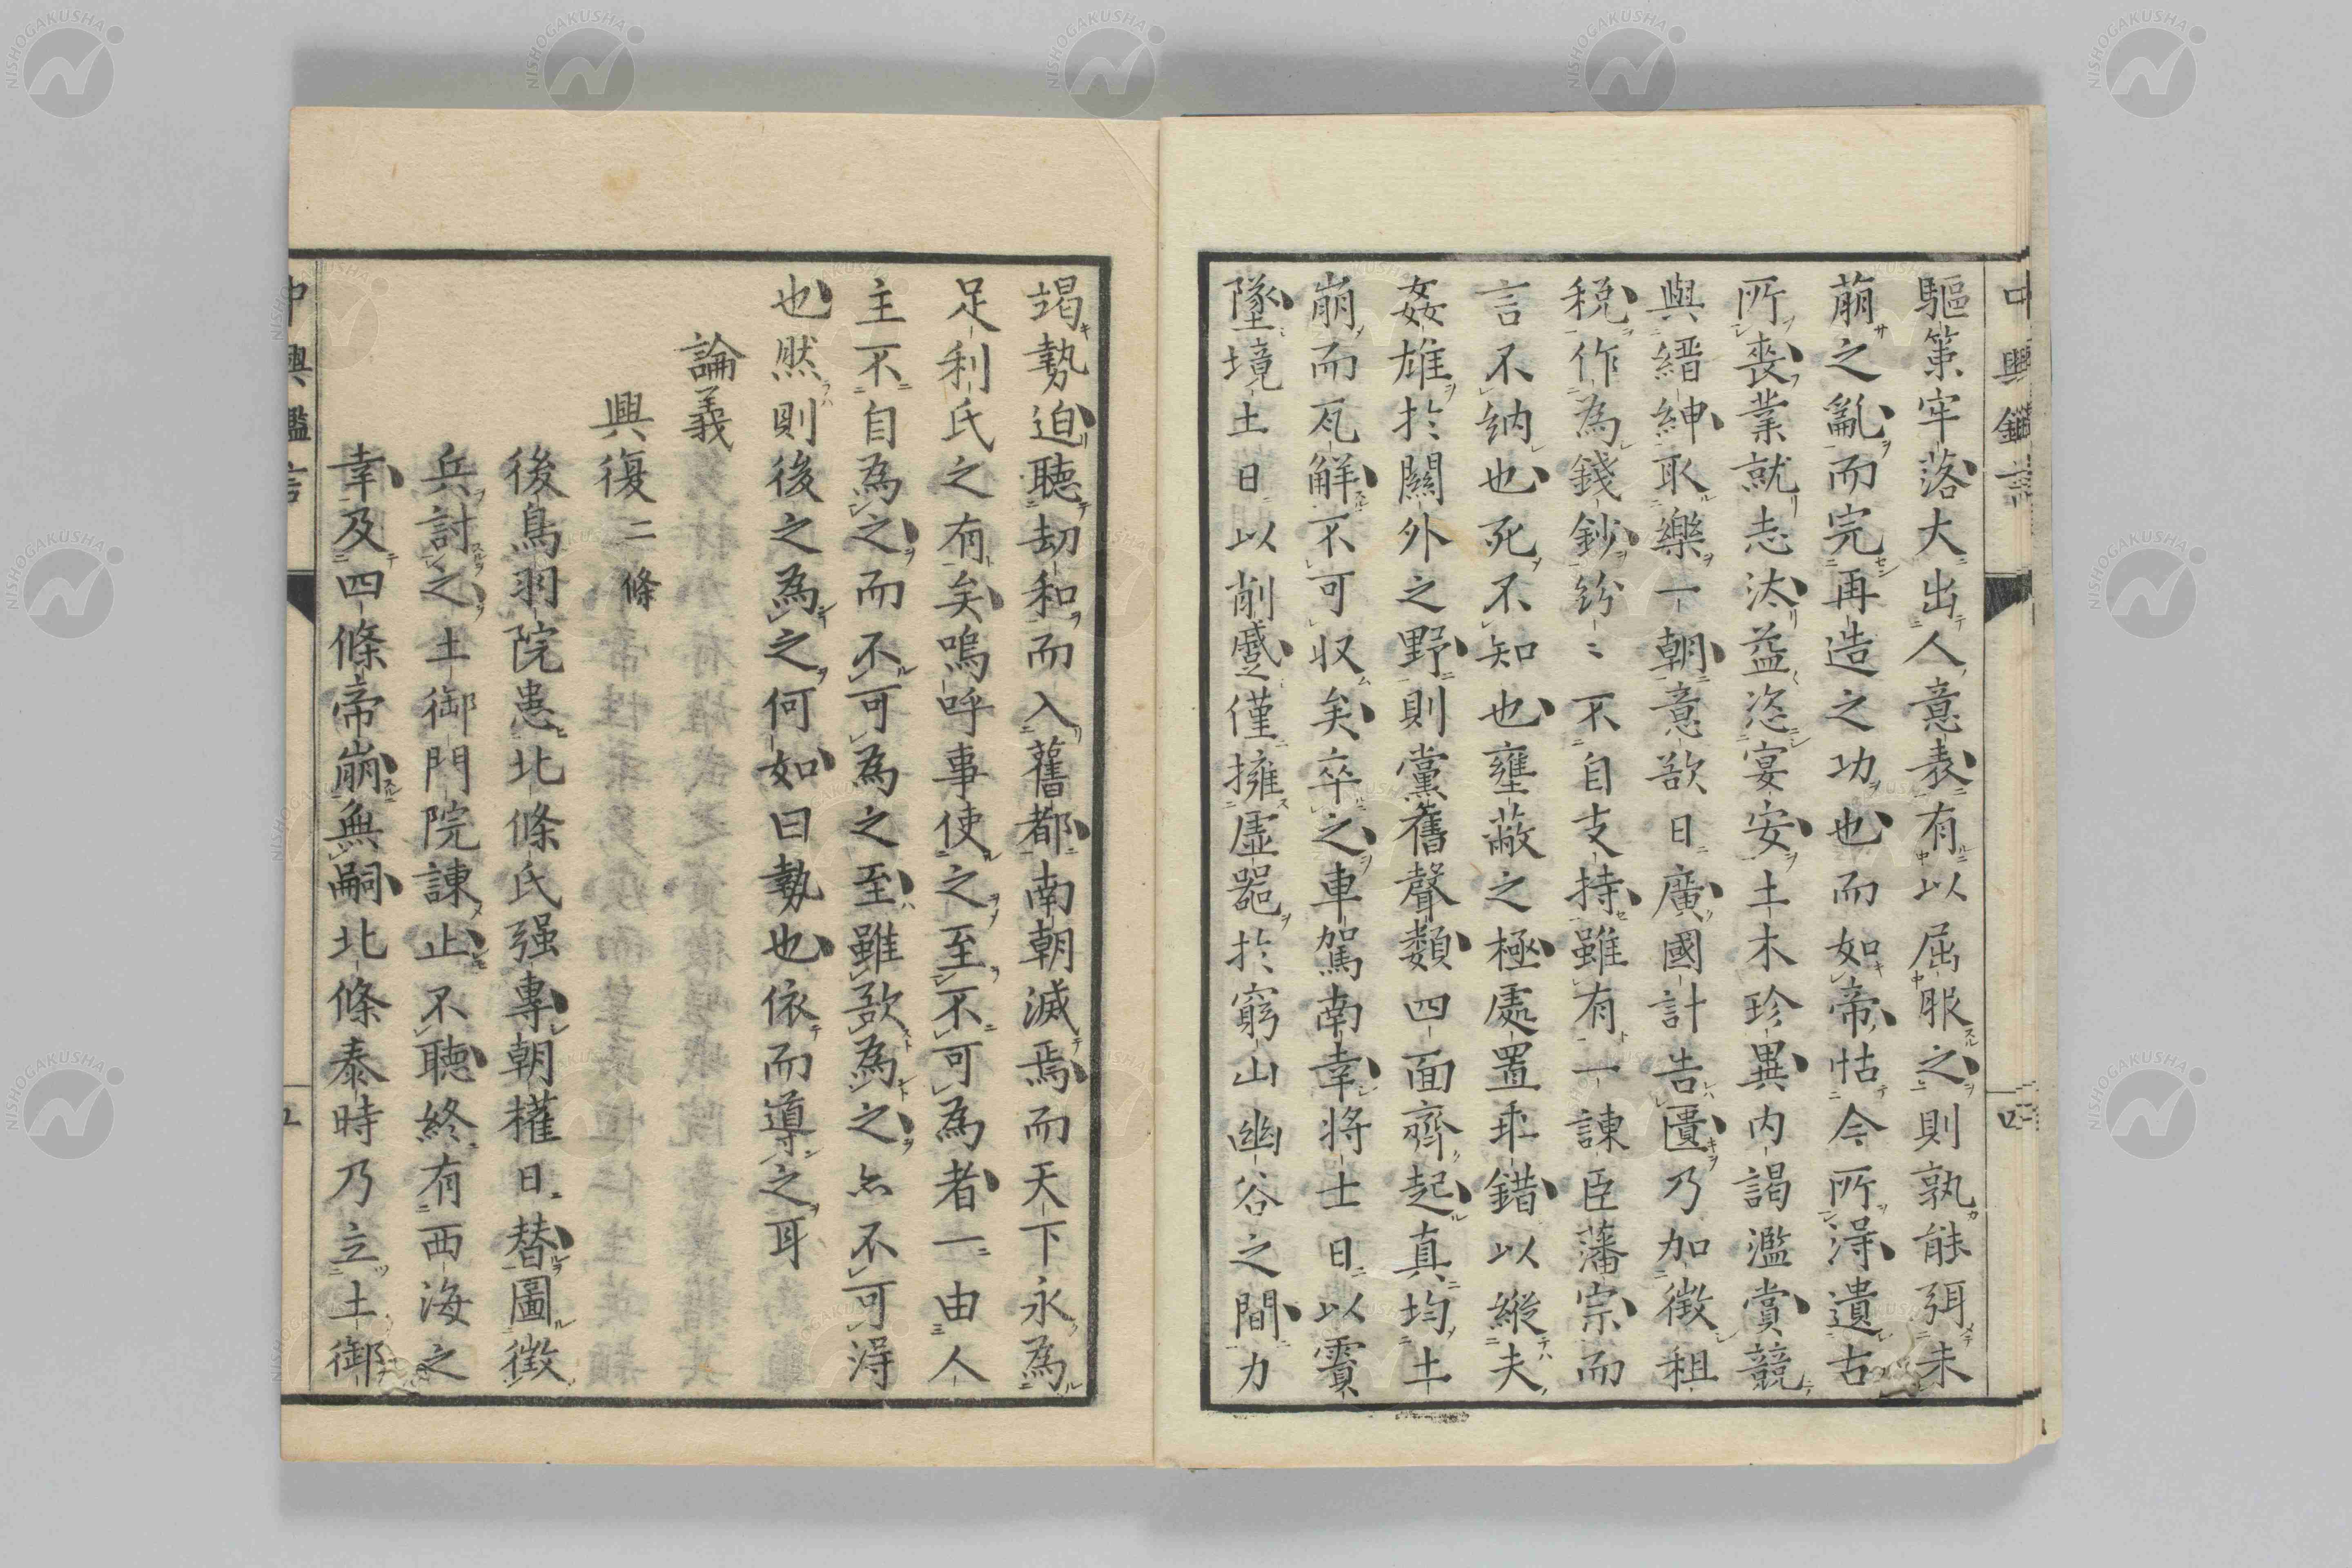 驅策牢落大出人意表有以屈服之則孰能弭未
萠之亂而完再造之功也而如帝怙今所淂遺古
所喪業就志汰益恣宴安土木珍異内謁濫賞競
與縉紳取樂一朝意欲日廣國計告匱乃加徴租
稅作為錢鈔紛〻不自支持雖有一諫臣藩宗而
言不納也死不知也壅蔽之極處置乖錯以縱夫
姦雄於闗外之野則黨舊聲類四面齊起真均土
崩而瓦解不可収矣卒之車駕南幸將士日以賓
墜境土日以削蹙僅擁虛器於窮山幽谷之間力
中興鑑言
四
竭勢迫聽刼和而入舊都南朝滅焉而天下永為
足利氏之有矣嗚呼事使之至不可為者一由人
主不自為之而不可為之至雖欲為之亦不可淂
也然則後之為之何如曰勢也依而導之耳
論義
興復二條
後鳥羽院患北條氏强專朝權日替圖徴
兵討之土御門院諫止不聽終有西海之
幸及四條帝崩無嗣北條泰時乃立土御
中興鑑言
五
NISHOGAKUSHA